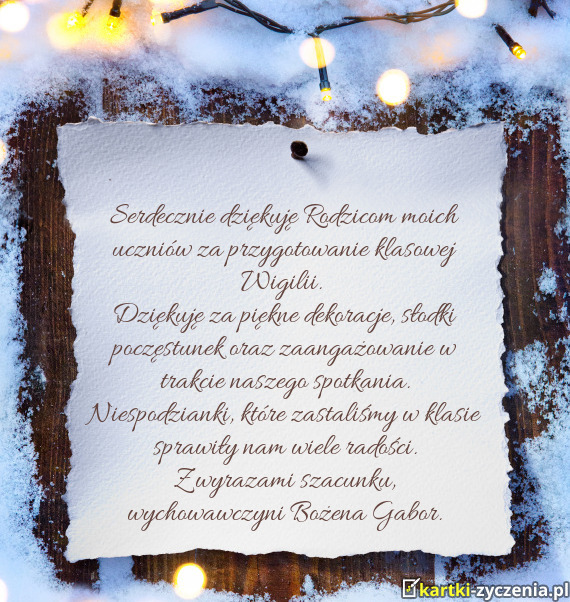 Serdecznie dziękuję Rodzicom moich
uczniów za przygotowanie klasowej
Wigilii.
Dziękuję za piękne dekoracje, słodki
poczęstunek oraz zaangażowanie w
trakcie naszego spotkania.
Niespodzianki, które zastaliśmy w klasie
sprawiły nam wiele radości.
Z wyrazami szacunku,
wychowawczyni Bożena Gabor.
kartki-zyczenia.pl